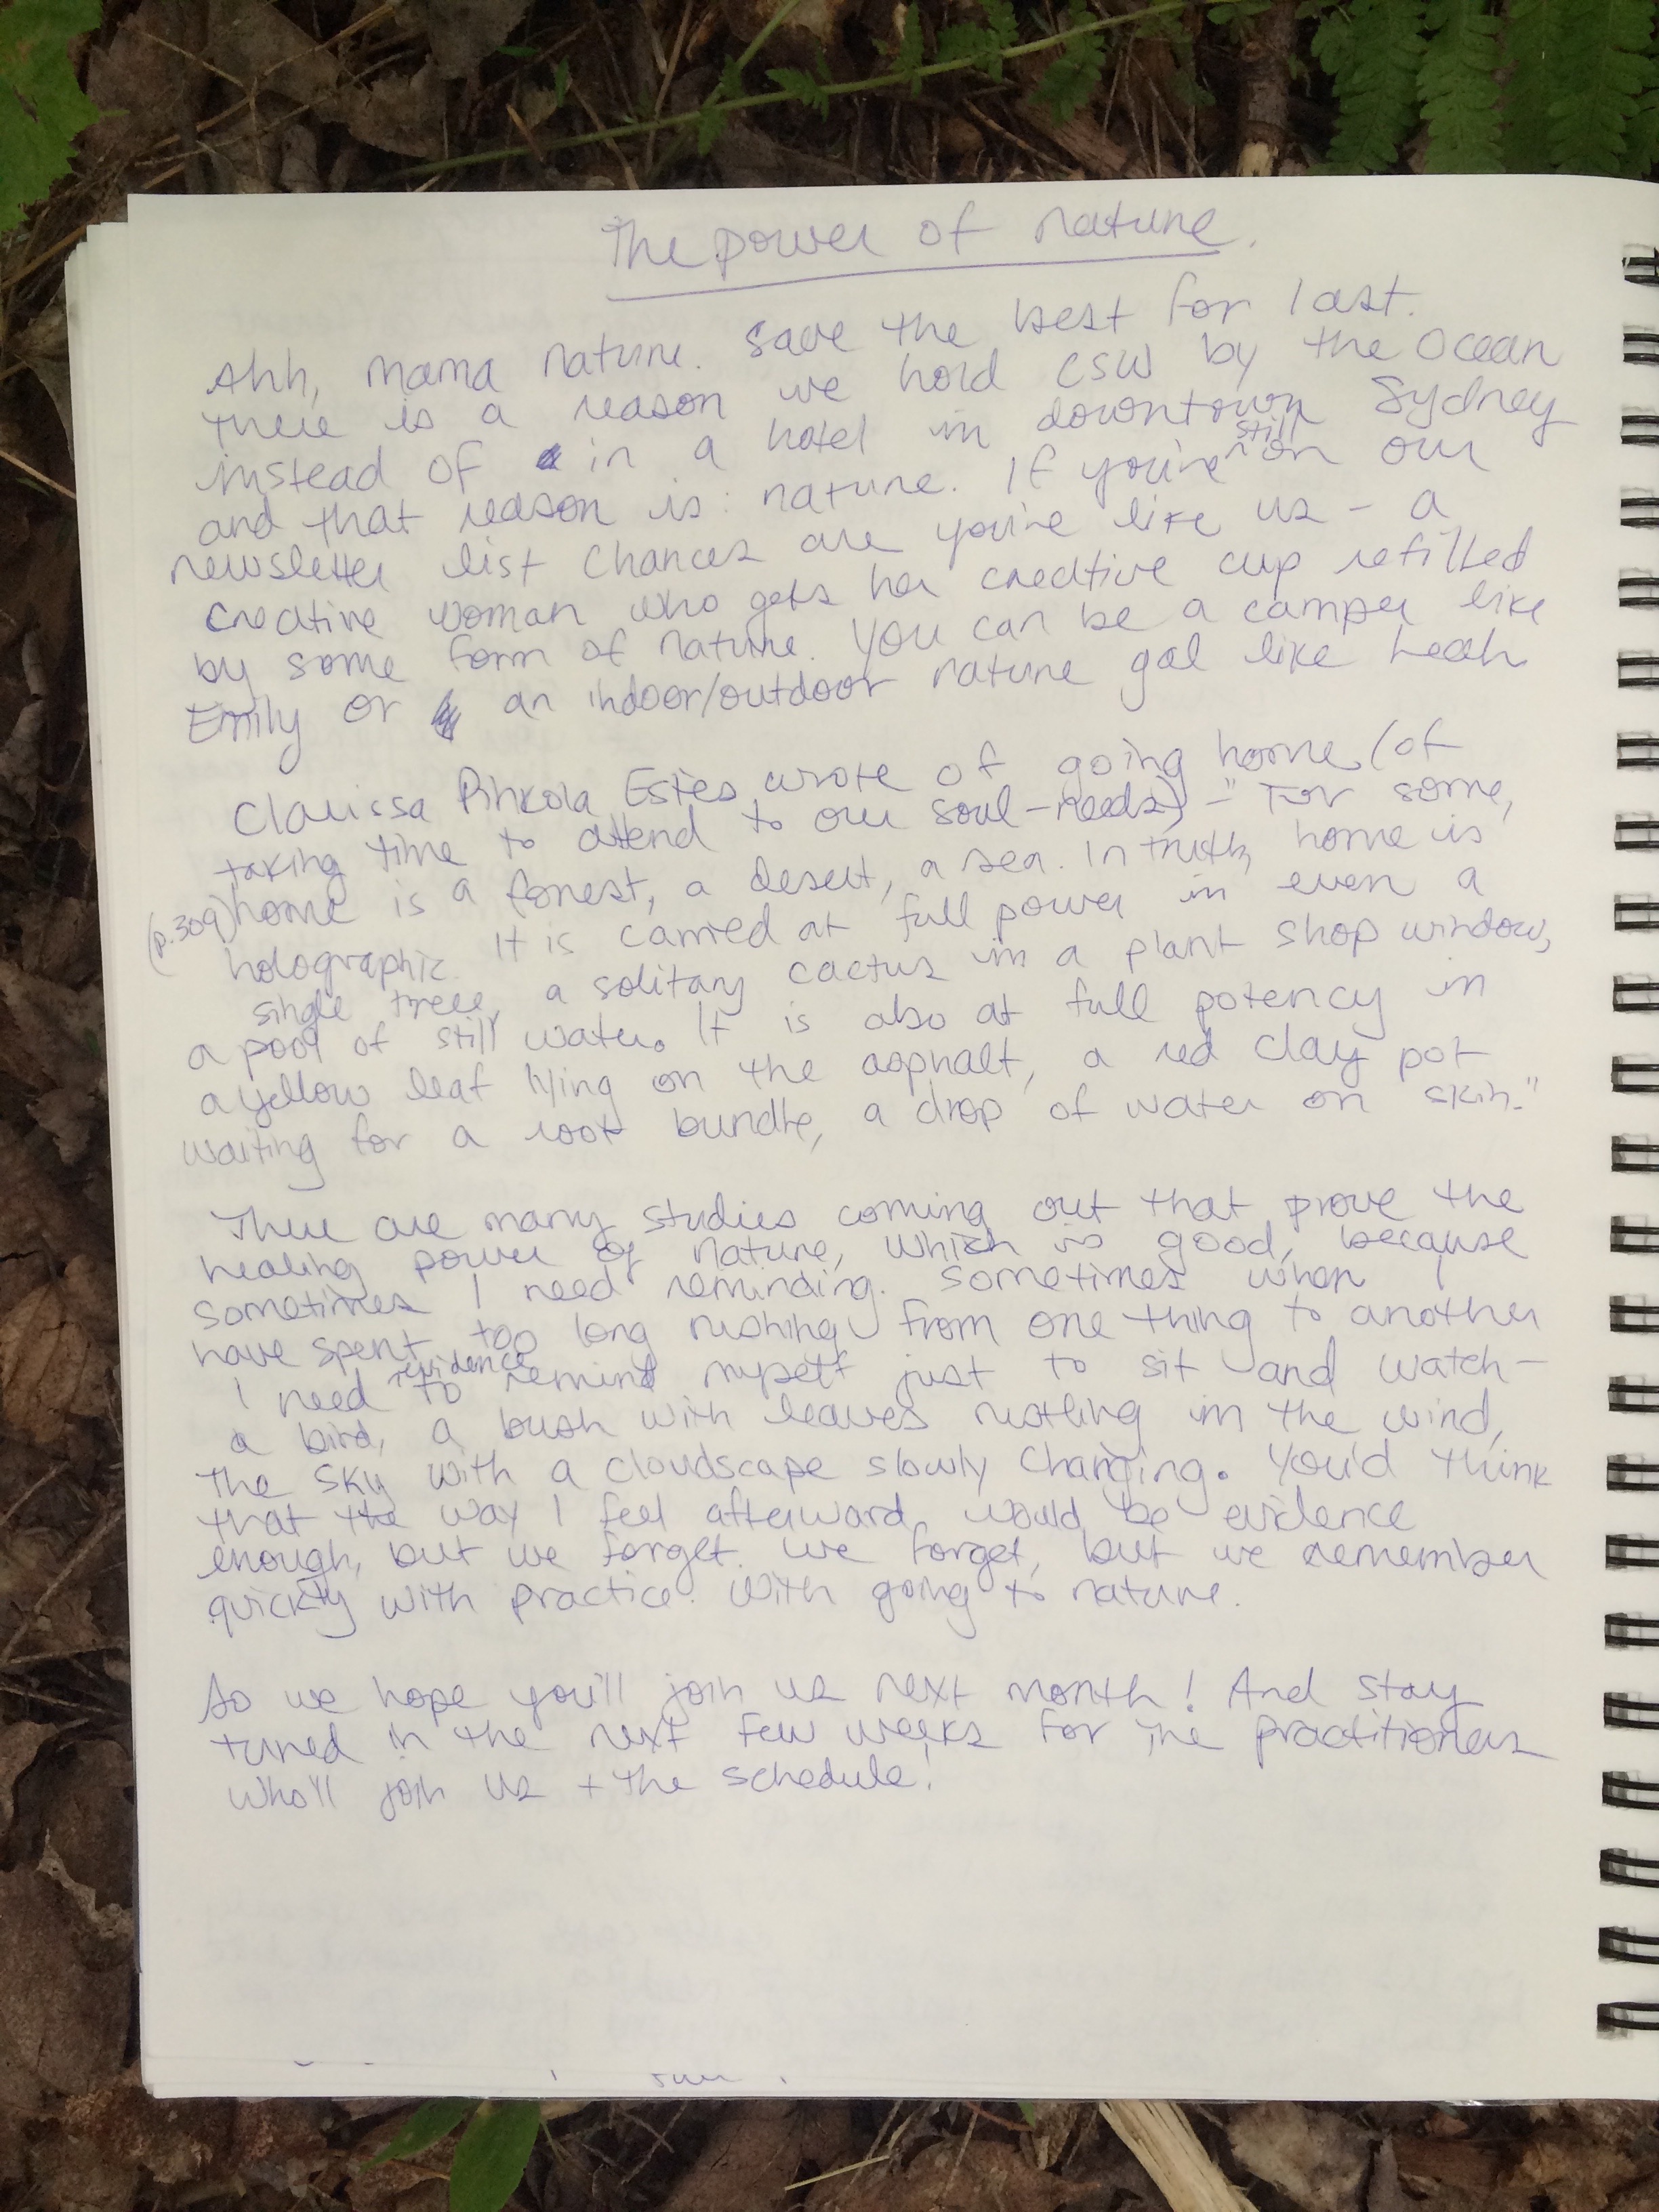 The power of nature.
Ahh, mama nature. Save the best for last.
there is a reason we hold CSW by the ocean
instead of in a hotel in downtown Sydney
and that reason is: nature. If you're still on our
newsletter list chances are you're like us - a
creative woman who gets her creative cup refilled
by some form of nature. You can be a camper like
Emily or an indoor/outdoor nature gal like Leah.
Clarissa Pinkola Estés wrote of going home (of
taking time to attend to our soul-needs) - "For some,
(p.309) home is a forest, a desert, a sea. In truth, home is
holographic. It is carried at full power in even a
single tree, a solitary cactus in a plant shop window,
a pool of still water. It is also at full potency in
a yellow leaf lying on the asphalt, a red clay pot
waiting for a root bundle, a drop of water on skin."
There are many studies coming out that prove the
healing power of nature, which is good, because
sometimes I need reminding. Sometimes when I
have spent too long rushing from one thing to another
I need evidence to remind myself just to sit and watch -
a bird, a bush with leaves rustling in the wind,
the sky with a cloudscape slowly changing. You'd think
that the way I feel afterward would be evidence
enough, but we forget. We forget, but we remember
quickly with practice. With going to nature.
So we hope you'll join us next month! And stay
tuned in the next few weeks for the practitioners
who'll join us + the schedule!